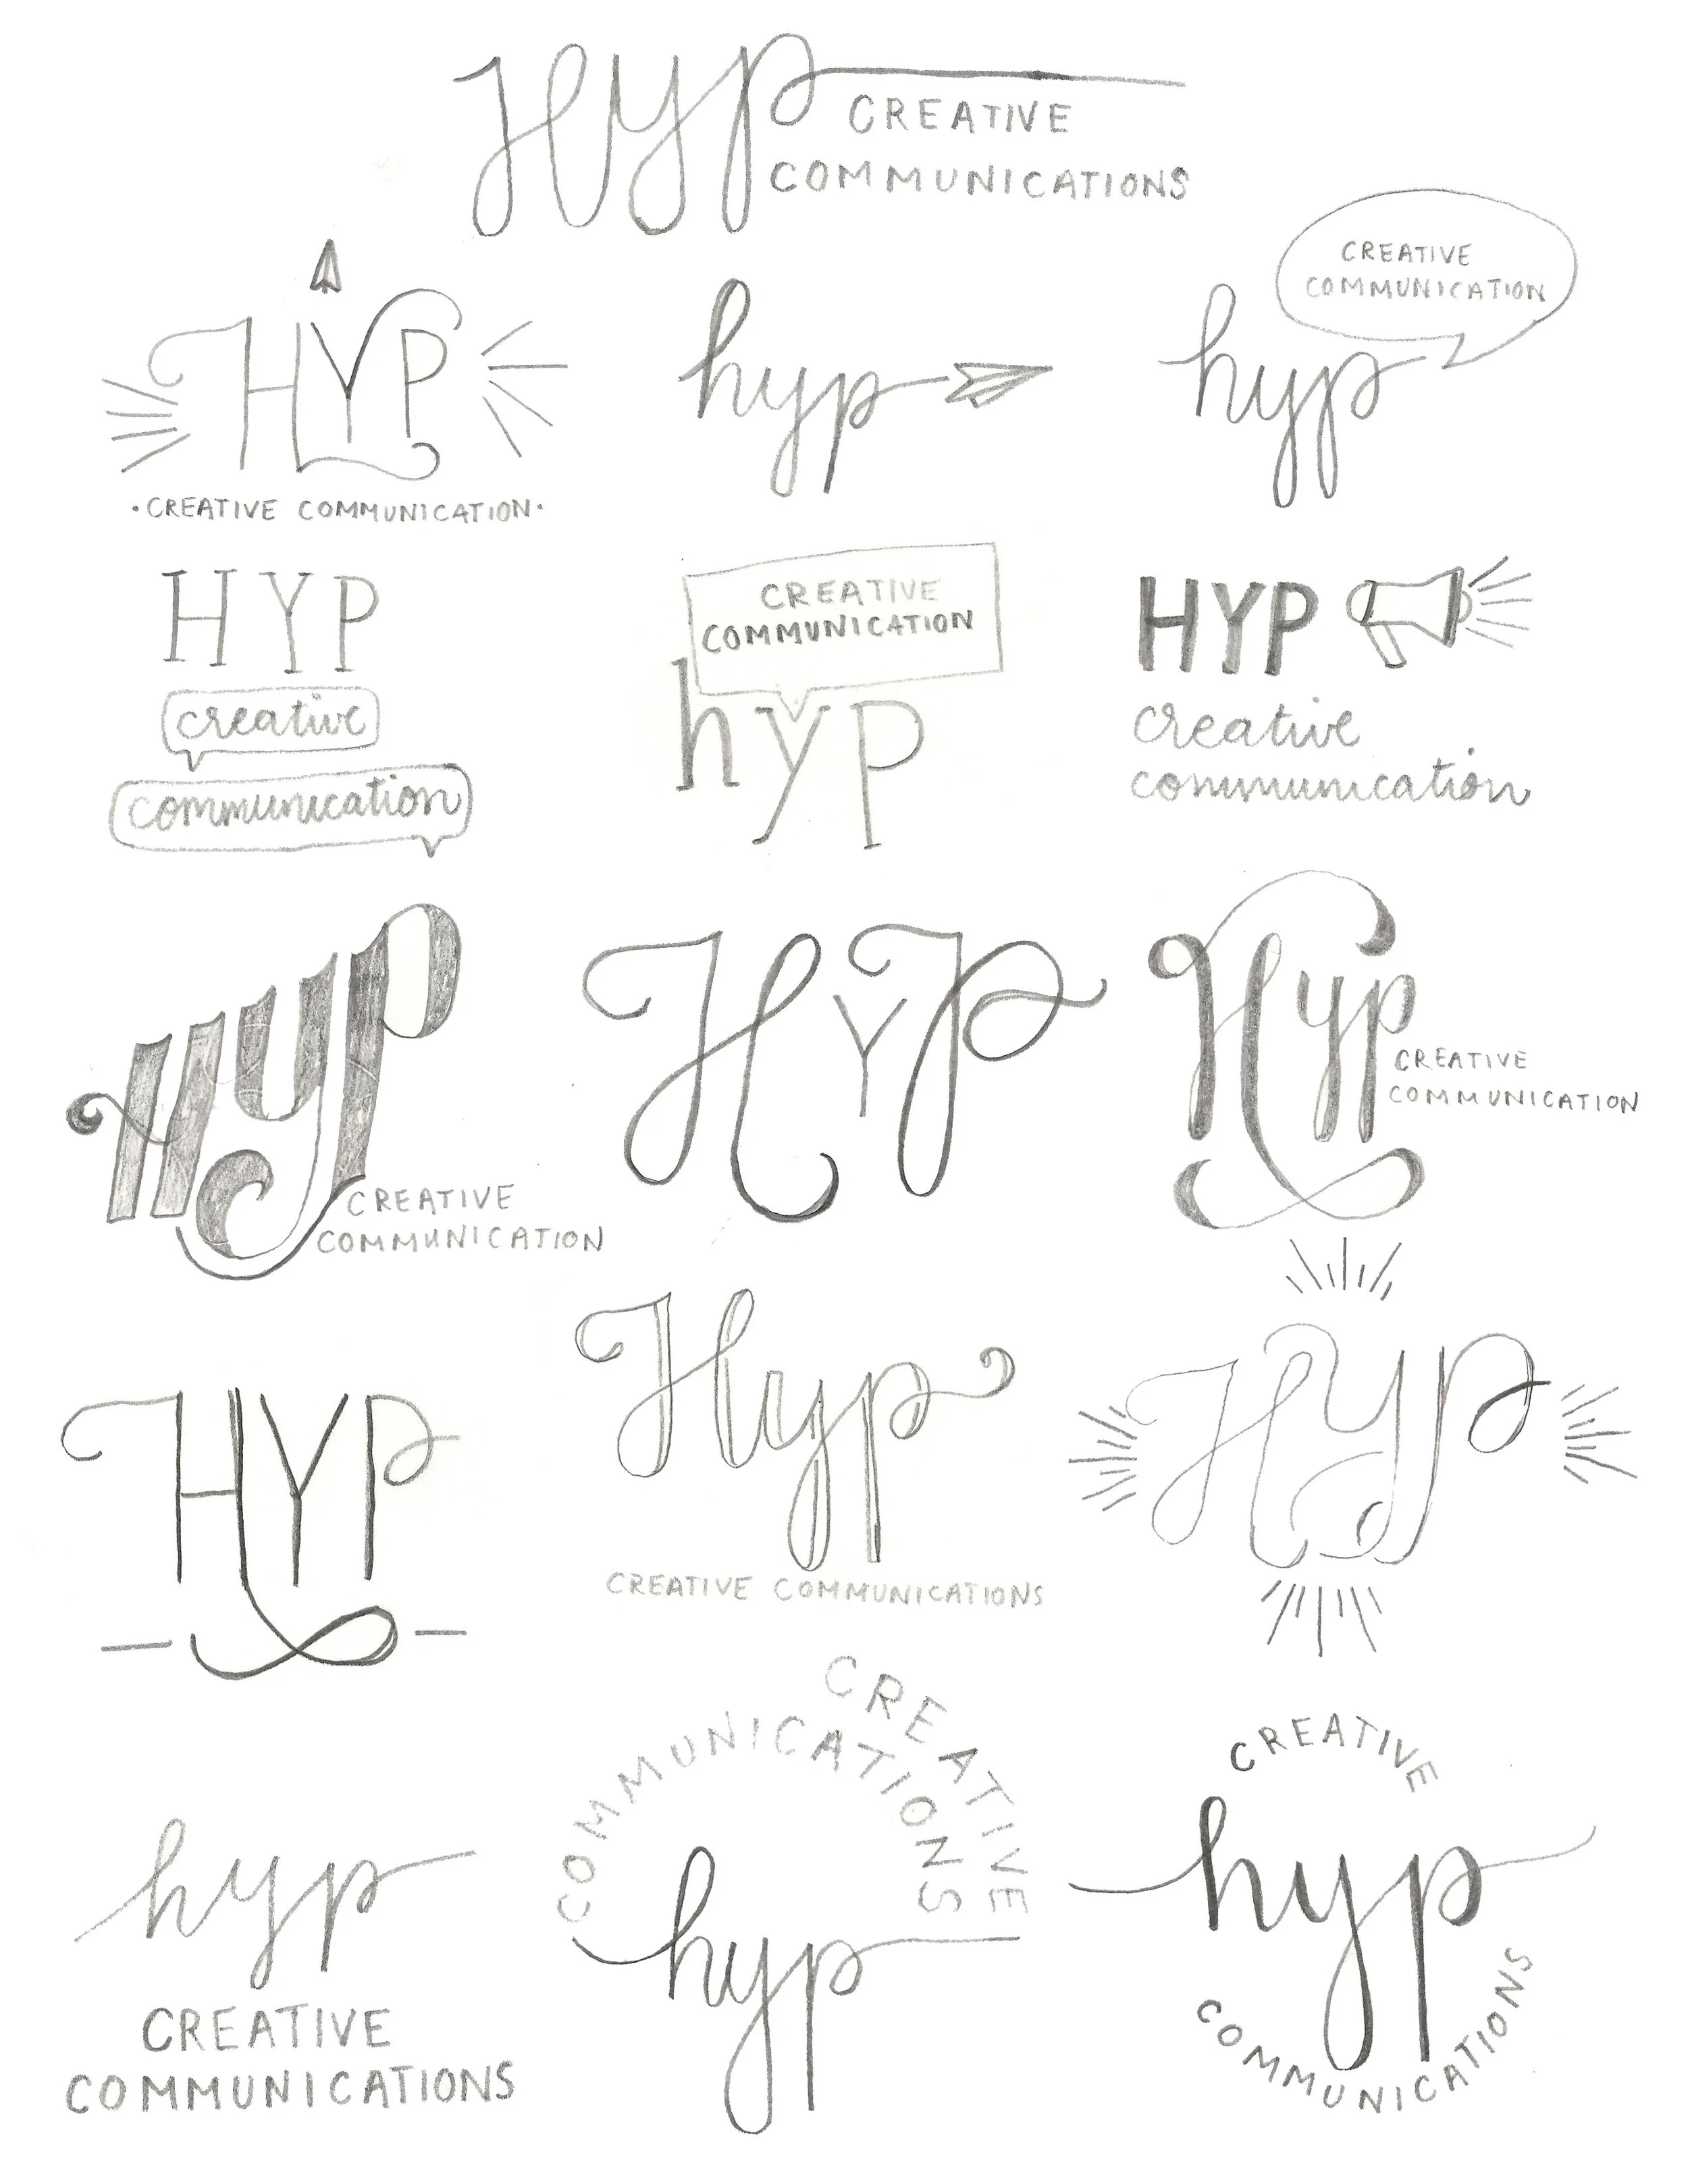 Hyp
CREATIVE
COMMUNICATIONS
HYP
·CREATIVE COMMUNICATION·
hyp
hyp
CREATIVE
COMMUNICATION
HYP
creative
communication
hyp
CREATIVE
COMMUNICATION
HYP
creative
communication
HYP
CREATIVE
COMMUNICATION
HYP
Hyp
CREATIVE
COMMUNICATION
HYP
Hyp
CREATIVE COMMUNICATIONS
Hyp
hyp
CREATIVE
COMMUNICATIONS
CREATIVE
COMMUNICATIONS
hyp
CREATIVE
hyp
COMMUNICATIONS